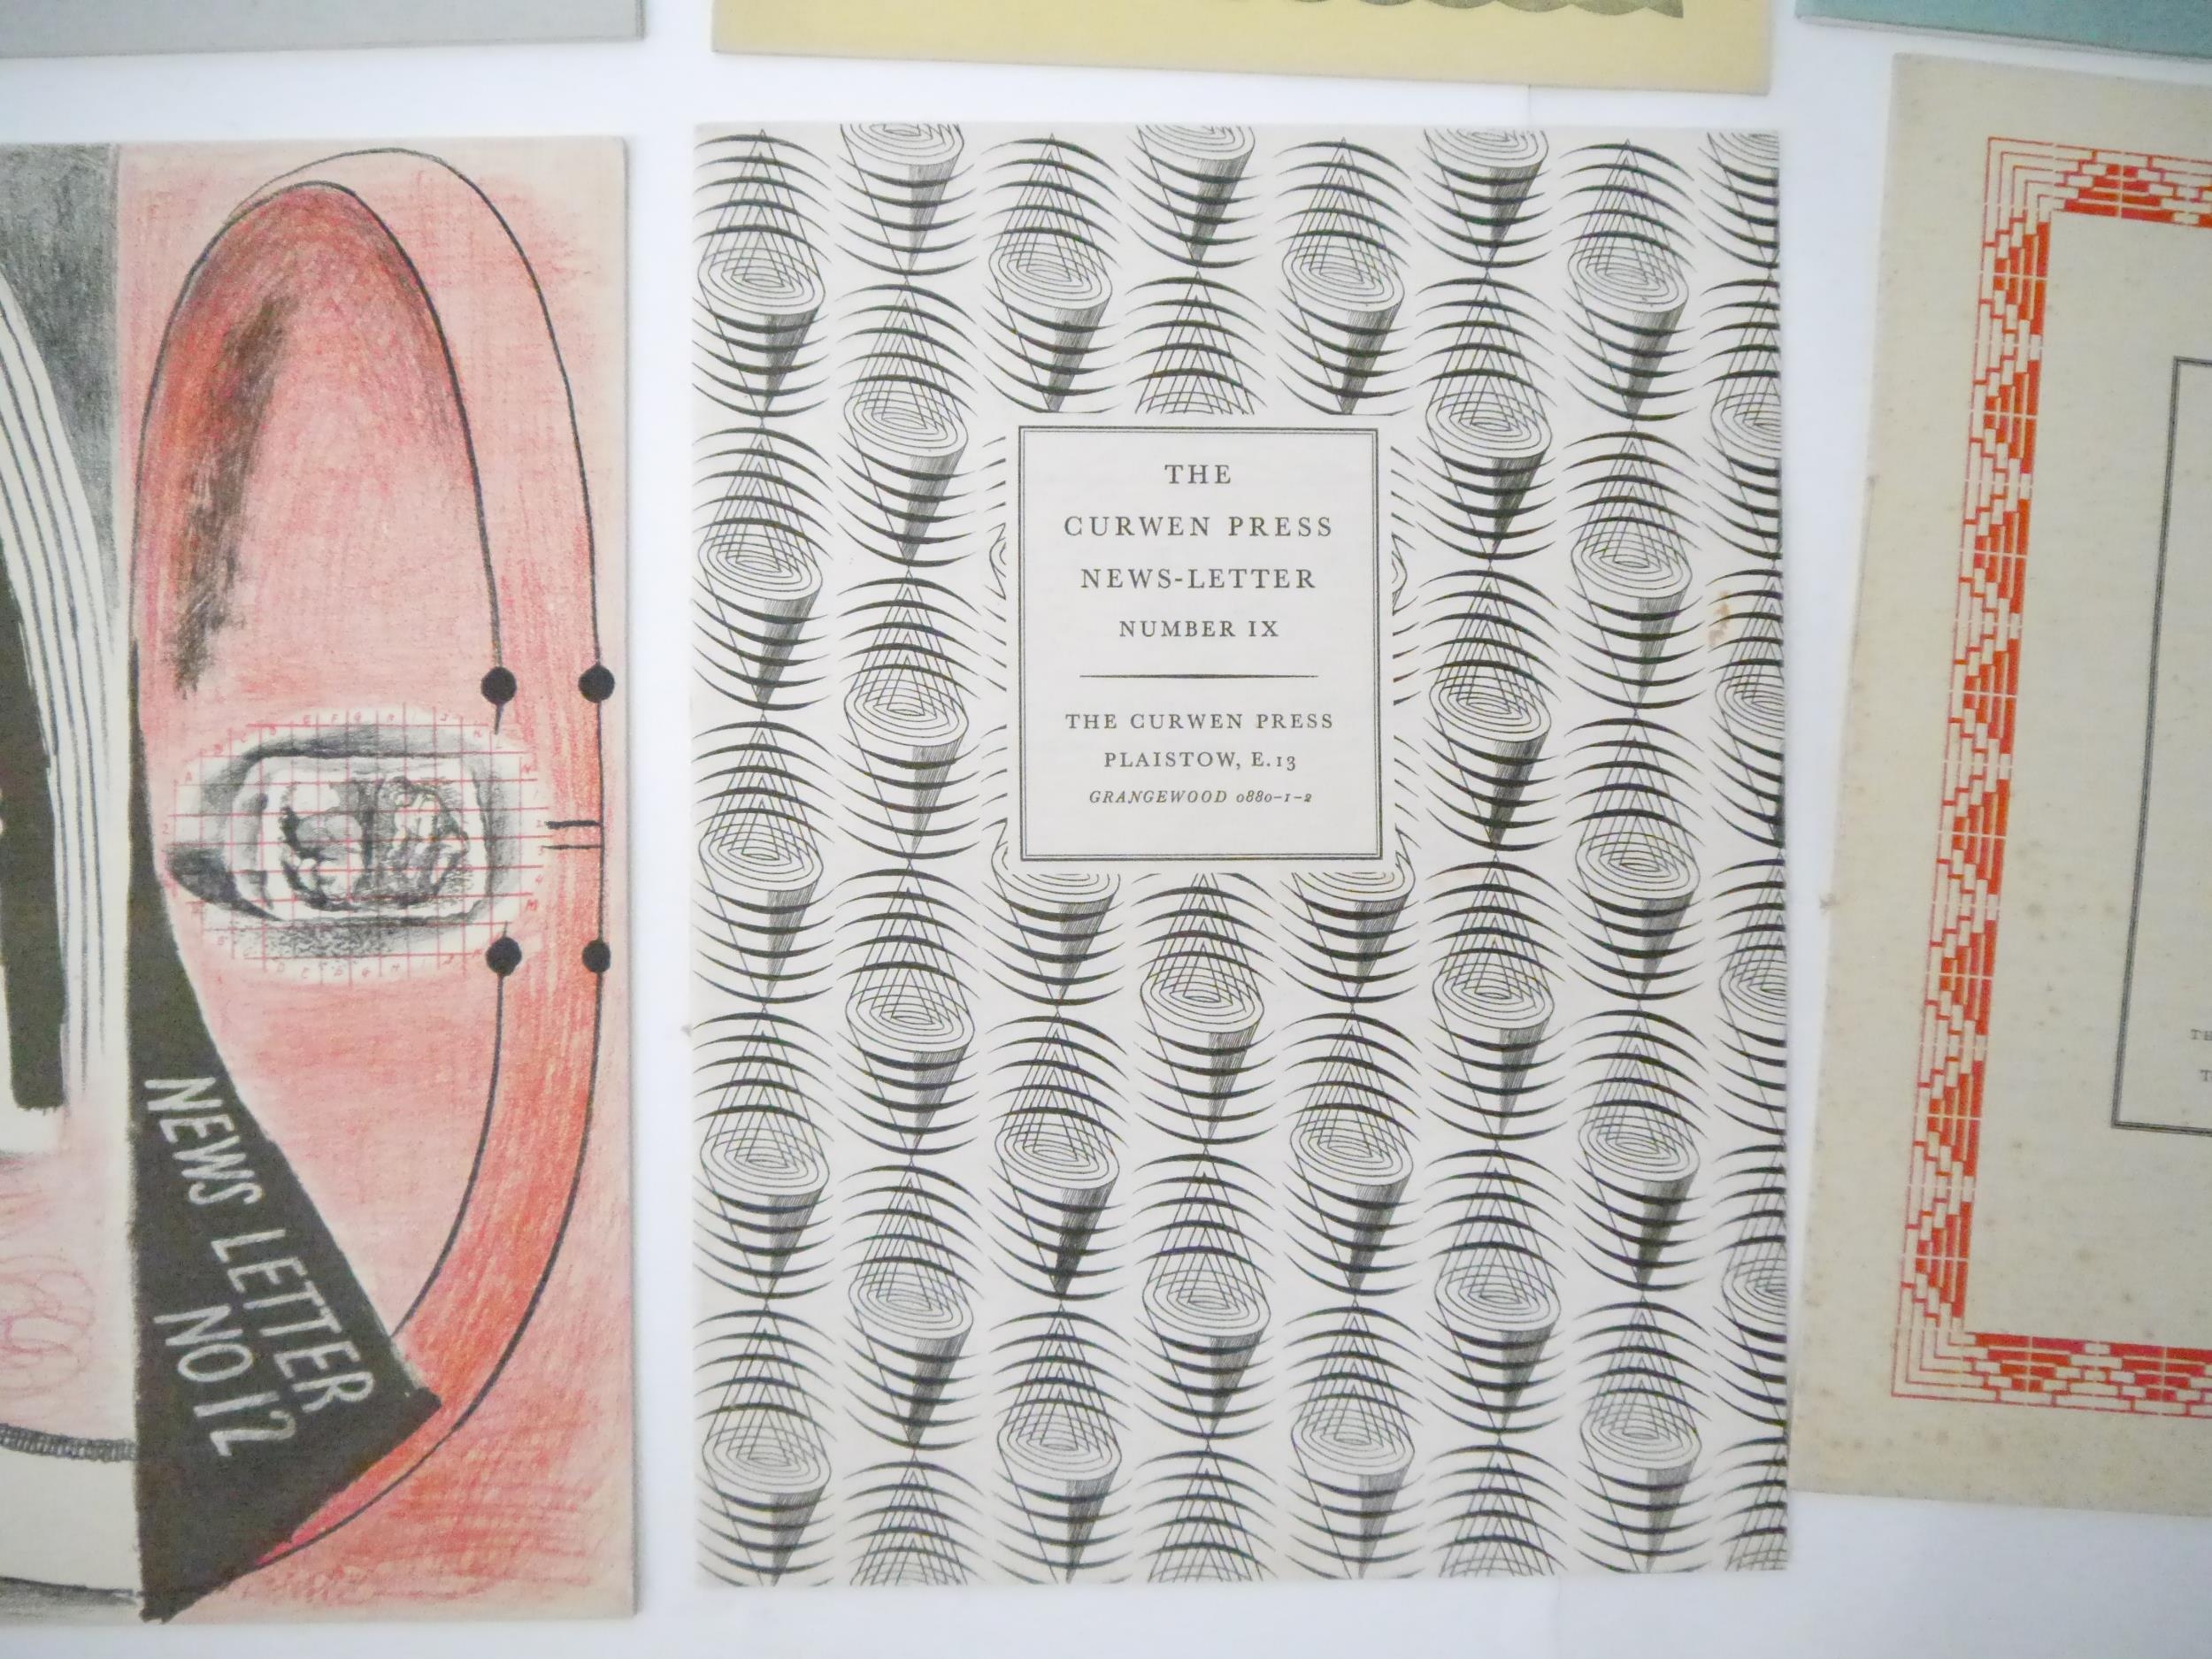 NEWS LETTER
NO 12
THE
CURWEN PRESS
NEWS-LETTER
NUMBER IX
THE CURWEN PRESS
PLAISTOW, E.13
GRANGEWOOD 0880-1-2